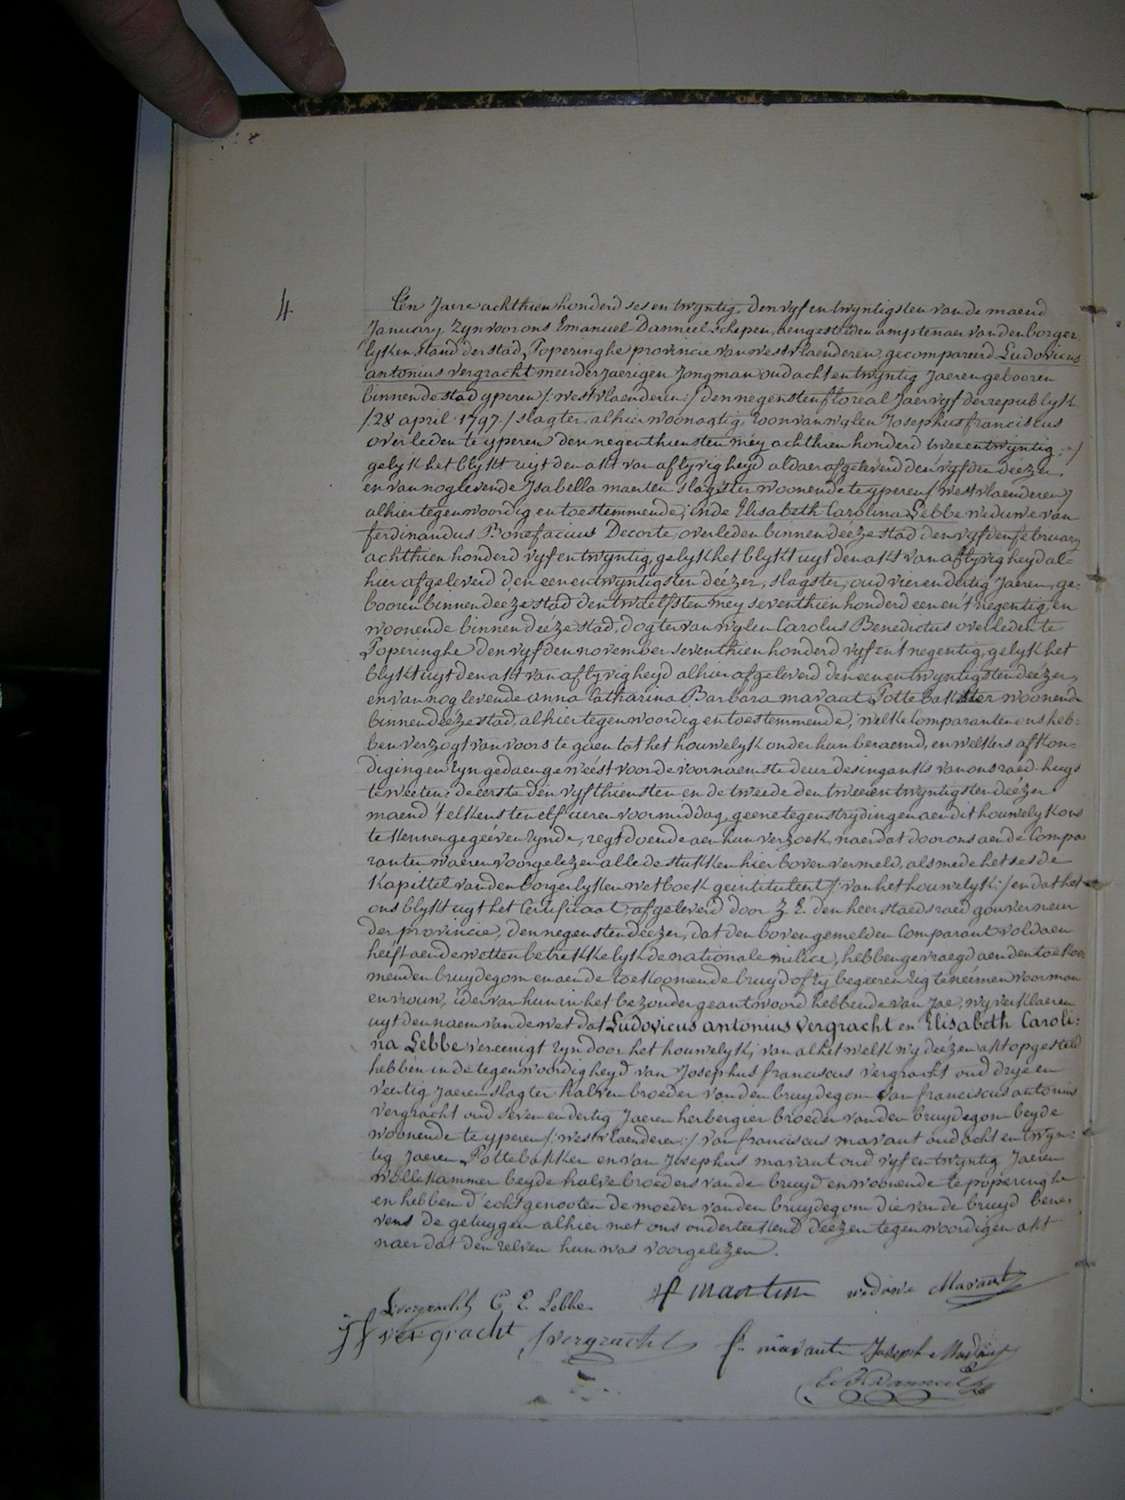 4
Een Jaere achthien honderd ses en twyntig, den vyf en twyntigsten van de maend
January, zyn voor ons Emanuel Danneel Schepen, beampten aer van den borger-
lyken stand der stad Poperinghe provincie van westvlaenderen, gecompareerd Ludovicus
antonius vergracht meerderjaerigen Jongman oud acht en twyntig Jaeren gebooren
binnen de stad yperen /: westvlaenderen :/ den negensten floreal Jaer vyf der republyk
/28 april 1797./ slagter, alhier woonagtig, zoon van wylen Josephus franciscus
overleden te yperen den negenthiensten mey achthien honderd twee en twyntig :/
gelyk het blykt uyt den akt van aflyvigheyd aldaer afgeleverd den vyfden deezer,
en van nog levende Isabella maerten slagster woonende te yperen /westvlaenderen/
alhier tegenwoordig en toestemmende; ende Elisabeth Carolina Lebbe weduwe van
ferdinandus Bonefacius Decorte, overleden binnen deéze stad den vyfden february
achthien honderd vyf en twyntig, gelyk het blykt uyt den akt van aflyvigheyd al-
hier afgeleverd den een en twyntigsten deézer, slagster, oud vier en dertig Jaeren, ge-
booren binnen deeze stad den twelfsten mey seventhien honderd een en 't negentig, en
woonende binnen deéze stad, dogter van wylen Carolus Benedictus overleden te
Poperinghe den vyfden november seventhien honderd vyf en 't negentig, gelyk het
blykt uyt den akt van aflyvigheyd alhier afgeleverd den een en twyntigsten deézer,
en van nog levende anna Catharina Barbara mavaut Pottebakster woonende
binnen deéze stad, alhier tegenwoordig en toestemmende; welke Comparanten ons heb-
ben verzogt van voors te gaen tot het houwelyk onder hun beraemd, en welkers afkon-
digingen zyn gedaen geweést voor de voornaemste deur des inganks van ons raed-huys
te weeten: de eerste den vyfthiensten en de tweede den twee en twyntigsten deézer
maend 't elkens ten elf ueren voormiddag, geene tegenstrydingen aen dit houwelyk ons
te kennen gegeéven zynde, regt doende aen hun verzoek, naer dat door ons aen de Compa-
ranten waeren voorgelezen alle de stukken hier boven vermeld, als mede het sesde
kapittel van den borgerlyken wetboek geintituleert /: van het houwelyk :/ en dat het
ons blykt uyt het Certificaat, afgeleverd door Z. E. den heer staedsraed gouverneur
der provincie, den negensten deézer, dat den boven gemelden Comparant voldaen
heéft aen de wetten betrekkelyk de nationale milice, hebben gevraegd aen den toekoo-
menden bruydegom en aen de toekoomende bruyd of zy begeeren zig te neémen voor man
en vrouw, ider van hun in het bezonder geantwoord hebbende van Jae, wy verklaeren
uyt den naem van de wet dat Ludovicus antonius vergracht en Elisabeth Caroli-
na Lebbe vereenigt zyn door het houwelyk; van al het welk wy deézen akt opgesteld
hebben in de tegenwoordigheyd van Josephus franciscus vergracht oud drye en
veertig Jaeren slagter halven broeder van den bruydegom van franciscus antonius
vergracht oud seven en dertig Jaeren herbergier broeder van den bruydegom beyde
woonende te yperen /: westvlaenderen :/ van franciscus mavaut oud acht en twyn-
tig Jaeren Pottebakker en van Josephus mavaut oud vyf en twyntig Jaeren
wollekammer beyde halve broeders van de bruyd en woonende te poperinghe
en hebben d'echtgenooten de moeder van den bruydegom die van de bruyd bene-
vens de getuygen alhier met ons onderteekend deezen tegenwoordigen akt
naer dat den zelven hun was voorgelezen.
Lvergracht C. E. Lebbe martin weduwe Mavaut
jf vergracht fvergracht f. mavaut Joseph Mavaut
Danneel